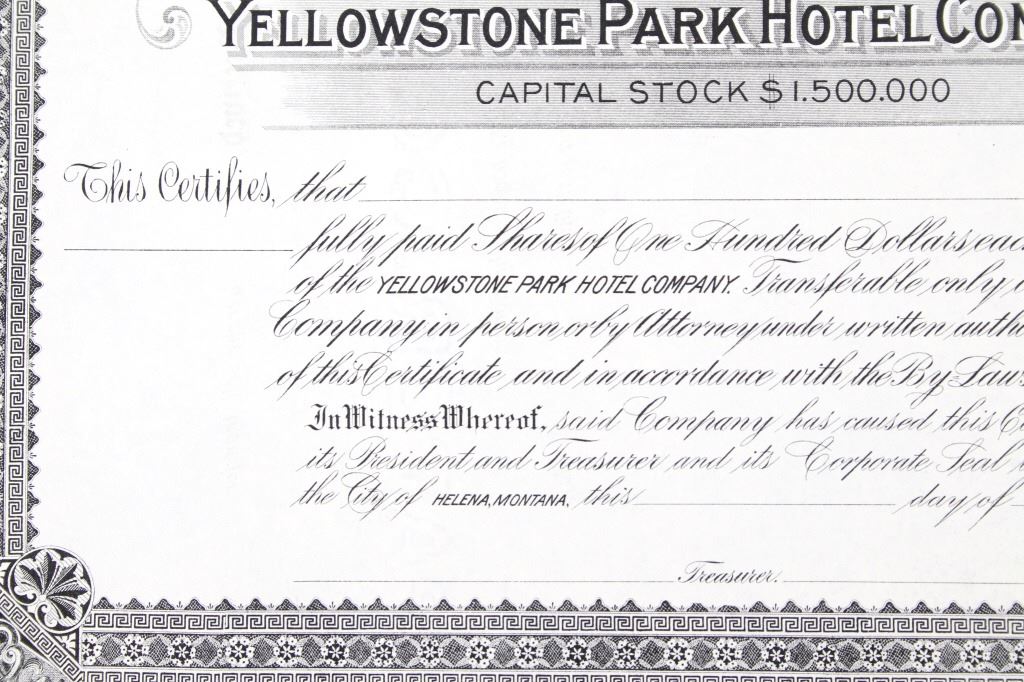 YELLOWSTONE PARK HOTEL COM
CAPITAL STOCK $1.500.000
This Certifies, that
fully paid Shares of One Hundred Dollars, eac
of the YELLOWSTONE PARK HOTEL COMPANY. Transferable only
Company in person, or by Attorney under written autho
of this Certificate and in accordance with the By-Laws
In Witness Whereof, said Company has caused this
its President and Treasurer and its Corporate Seal
the City of HELENA, MONTANA, this day of
Treasurer.